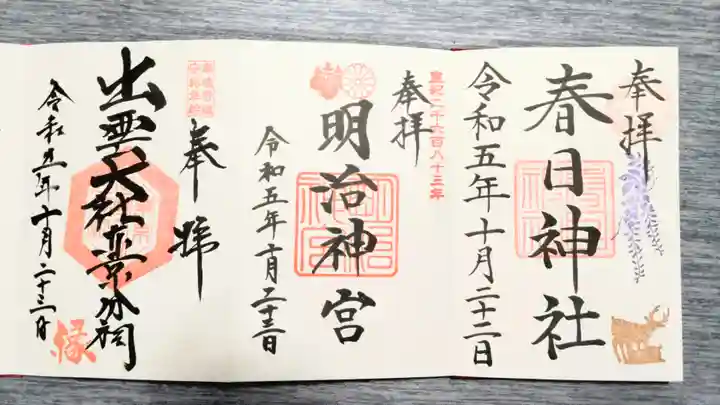 奉拝
春日神社
令和五年十月二十二日
皇紀二千六百八十三年
奉拝
明治神宮
令和五年十月二十三日
奉拝
出雲大社東京分祠
令和五年十月二十三日
縁